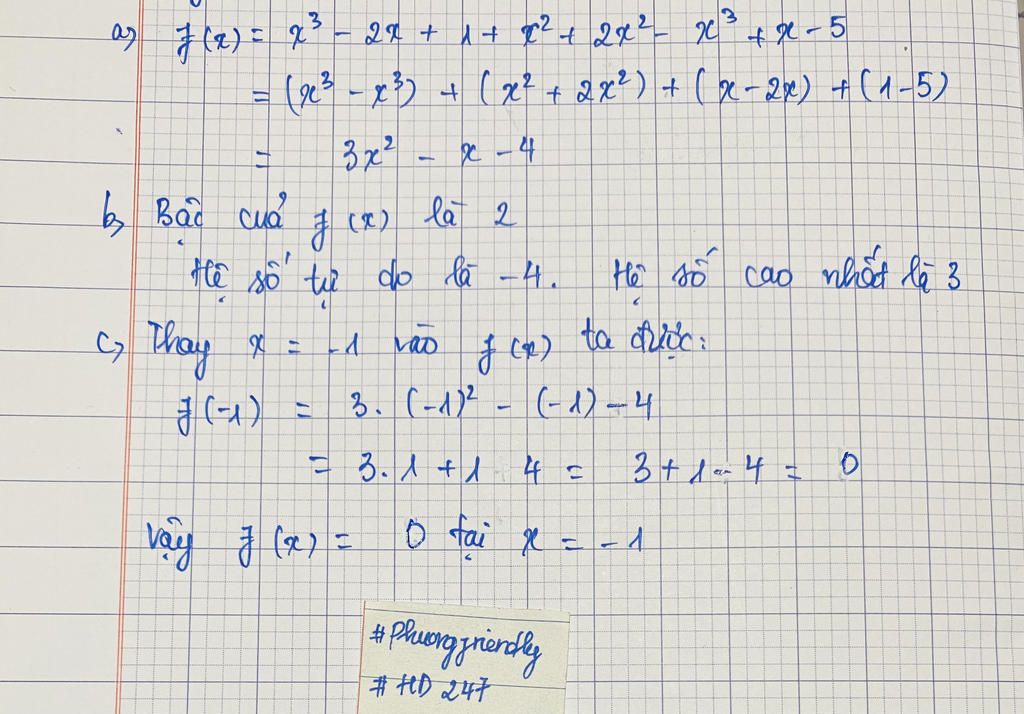 a, f(x) = x³ - 2x + 1 + x² + 2x² - x³ + x - 5
= (x³ - x³) + (x² + 2x²) + (x - 2x) + (1 - 5)
= 3x² - x - 4
b, Bậc cuả f(x) là 2
Hệ số tự do là -4. Hệ số cao nhất là 3
c, Thay x = -1 vào f(x) ta được:
f(-1) = 3. (-1)² - (-1) - 4
= 3. 1 + 1 4 = 3 + 1 - 4 = 0
Vậy f(x) = 0 tại x = -1
#Phuongfriendly
#HD 247